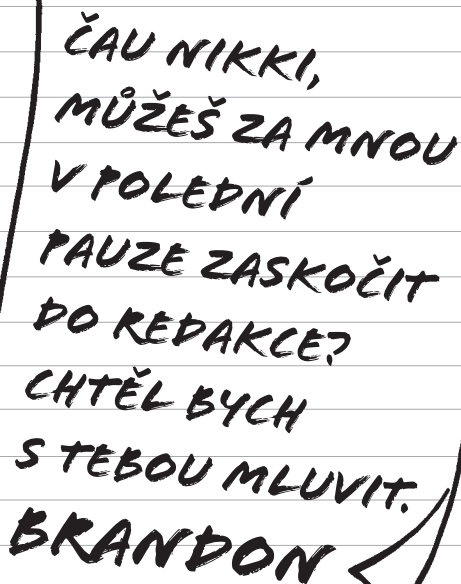 ČAU NIKKI,
MŮŽEŠ ZA MNOU
V POLEDNÍ
PAUZE ZASKOČIT
DO REDAKCE?
CHTĚL BYCH
S TEBOU MLUVIT.
BRANDON